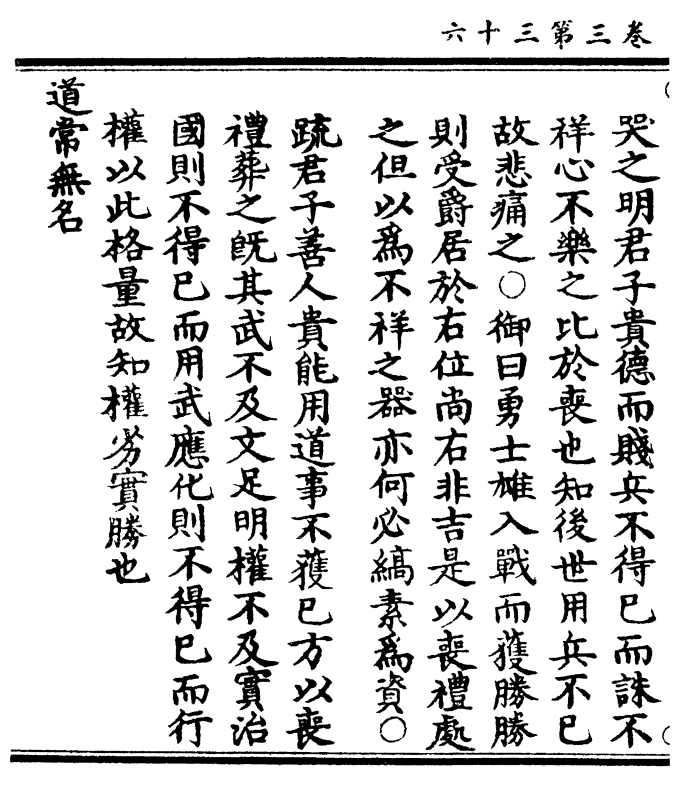 卷三第三十六
哭之明君子貴德而賤兵不得已而誅不
祥心不樂之比於喪也知後世用兵不已
故悲痛之○御曰勇士雄入戰而獲勝勝
則受爵居於右位尚右非吉是以喪禮處
之但以爲不祥之器亦何必縞素爲資○
疏君子善人貴能用道事不獲已方以喪
禮葬之旣其武不及文足明權不及實治
國則不得已而用武應化則不得已而行
權以此格量故知權劣實勝也
道常無名